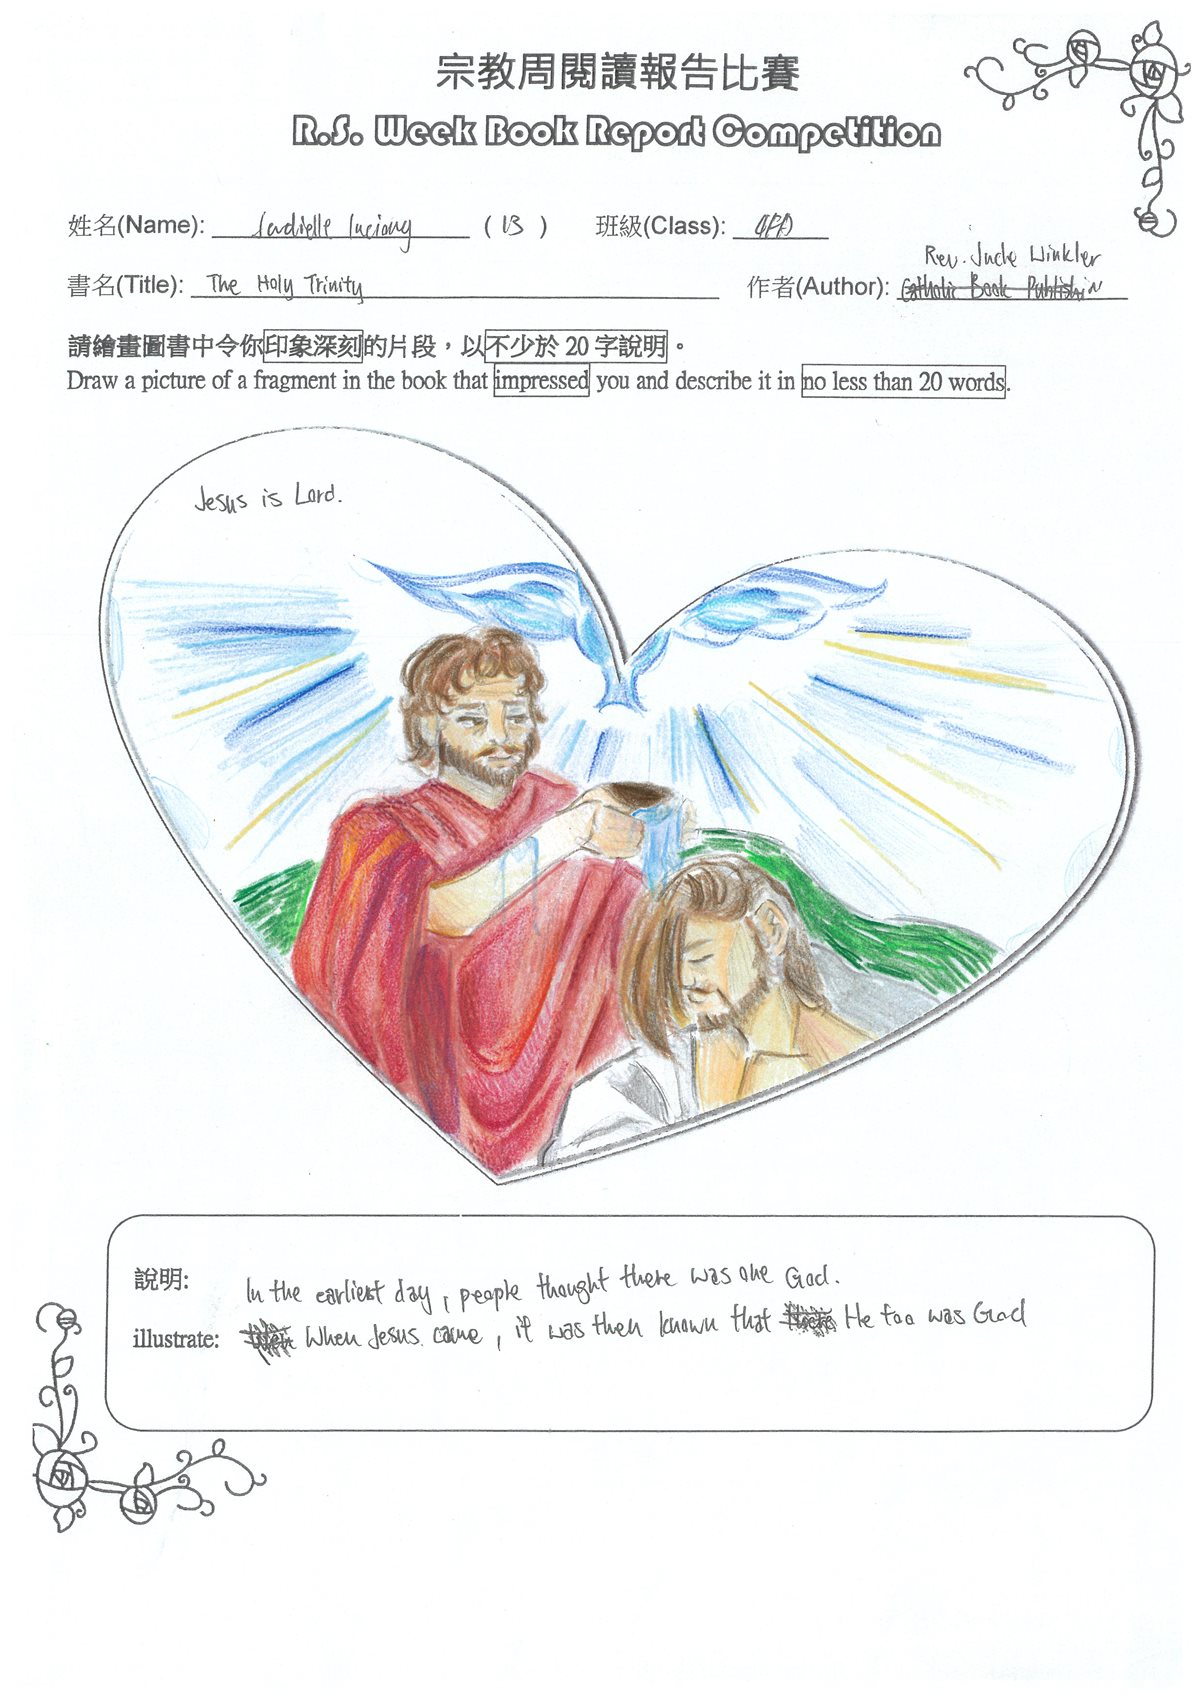 宗教周閱讀報告比賽
R.S. Week Book Report Competition
姓名(Name): ( 13 ) 班級(Class):
Rev. Jude Winkler
書名(Title): The Holy Trinity 作者(Author): Catholic Book Publishin
請繪畫圖書中令你印象深刻的片段，以不少於 20 字說明。
Draw a picture of a fragment in the book that impressed you and describe it in no less than 20 words.
Jesus is Lord.
說明: In the earliest day, people thought there was one God.
illustrate: When Jesus came, it was then known that He too was God